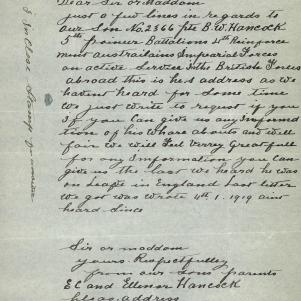 Dear Sir or Maddom
just a few lines in regards to
our Son No. 2366 pte B.W. Hancock
5th pioneer Battalions 4th Reinforce
ment Austrailians Imparial Forces
on active Service In the Brittish Forces
abroad this is hes address as we
havent heard for some time
we Just write to requst if you
If you Can give us any Informa
tion of his Whare abouts and well
fair we will Feel Verrey Greatfull
for any Information you Can
give us the last we heard he was
on Leafe in England Last letter
we got was wrote 4th 1. 1919 aint
heard Since
Sir or maddom
yours Rospectfulley
from our Sons parents
E C and Ellenor Hancock
address
I Inclose Stamp